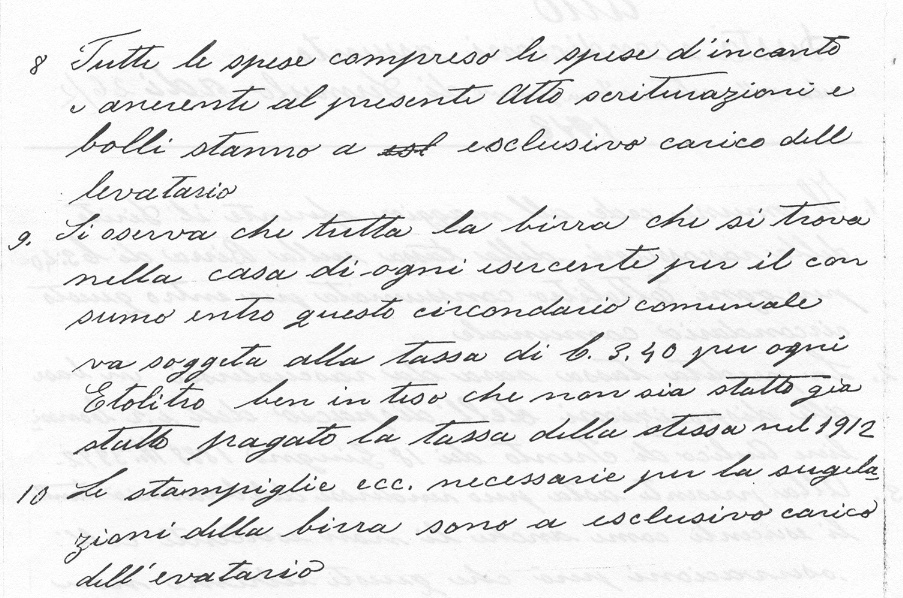 8 Tutte le spese compreso le spese d'incanto
e anerenti al presente Atto scriturazioni e
bolli stanno a esl esclusivo carico dell
levatario
9. Si oserva che tutta la birra che si trova
nella casa di ogni esercente per il con
sumo entro questo circondario comunale
va soggeta alla tassa di C. 3.40 per ogni
Etolitro ben inteso che non sia statto gia
statto pagato la tassa della stessa nel 1912
10 Le stampiglie ecc. necessarie per la sugela
zioni della birra sono a esclusivo carico
dell'evatario